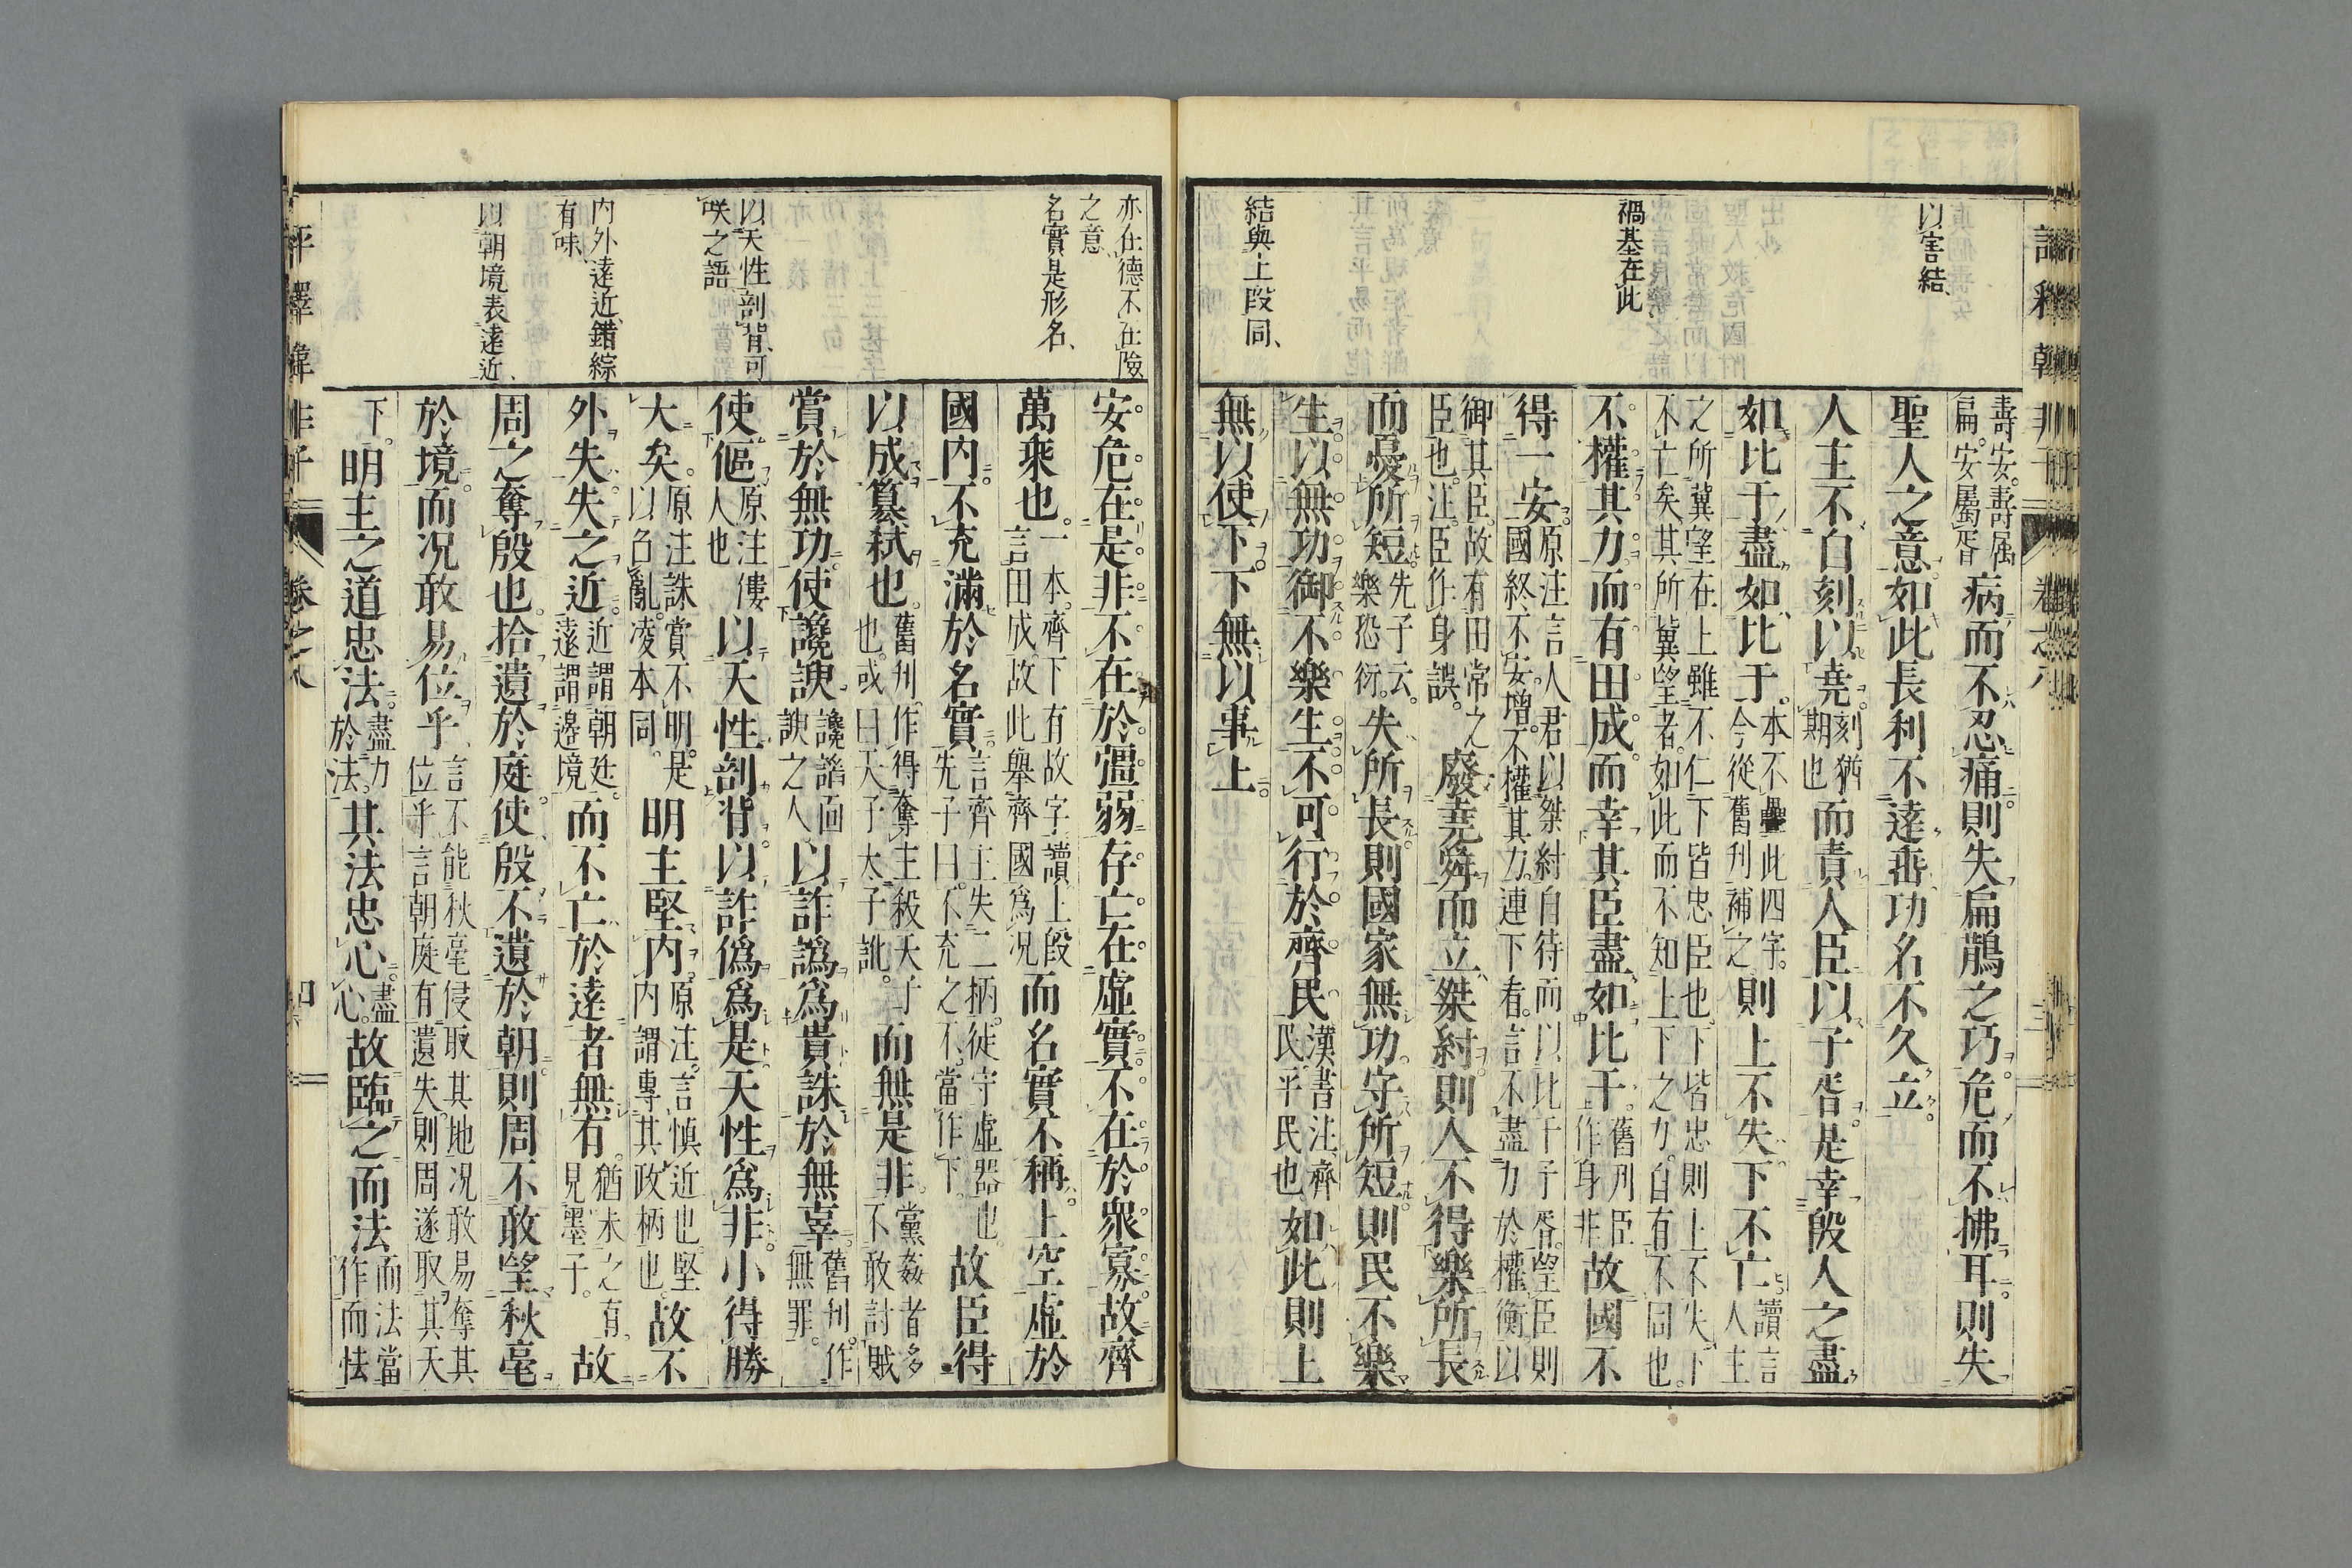 以害結、
禍基在此
結與上段同、
壽安。壽属
扁。安屬胥
病而不忍痛則失扁鵲之巧危而不拂耳則失
聖人之意如此長利不遠垂功名不久立
人主不自刻以堯
刻猶
期也
而責人臣以子胥是幸殷人之盡
如比干盡如比干。
本不疊此四字。
今從舊刊補之
則上不失下不亡
讀言
人主
之所冀望在上雖不仁下皆忠臣也下皆忠則上不失下
不亡矣其所冀望者。如此而不知上下之力。自有不同也。
不權其力而有田成而幸其臣盡如比干。
舊刋臣
作身非
故國不
得一安。
原注言人君以桀紂自待而以比干子胥望臣則
國終不安增。不權其力。連下看。言不盡力於權衡以
御其臣。故有田常之
臣也。注臣作身誤。
廢堯舜而立桀紂則人不得樂所長
而憂所短
先子云。
樂恐衍。
失所長則國家無功守所短則民不樂
生以無功御不樂生不可行於齊民
漢書注、齊
民平民也
如此則上
無以使下下無以事上。
亦在德不在險
之意、
名實是形名、
以天性剖背可
咲之語
内外遠近、錯綜
有味、
以朝境表遠近、
安危在是非不在於彊弱存亡在虛實不在於衆寡故齊
萬乘也。
一本。齊下有故字讀上段
言田成故此舉齊國爲况
而名實不稱上空虛於
國内不充滿於名實
言齊王失二柄。徒守虛器也。
先子曰。不充之不。當作下。
故臣得
以成篡弑也。
舊刋。作得奪主殺天子
也。或曰天子太子訛。
而無是非。
黨姦者多
不敢討賊
賞於無功使讒諛
讒謟面
諛之人
以詐譌爲貴誅於無辜
舊刋。作
無罪。
使傴
原注僂
人也
以天性剖背以詐僞爲是天性爲非小得勝
大矣。
原注誅賞不明。是
以召亂。凌本同。
明主堅内
原注。言愼近也。堅
内謂專其政柄也。
故不
外失失之近
近謂朝廷。
遠謂邊境
而不亡於遠者無有。
猶未之有、
見墨子。
故
周之奪殷也拾遺於庭使殷不遺於朝則周不敢望秋毫
於境而况敢易位乎
言不能秋毫侵取其地况敢易奪其
位乎言朝庭有遺失。則周遂取其天
下。
明主之道忠法
盡力
於法。
其法忠心
盡
心。
故臨之而法
而法當
作而怯